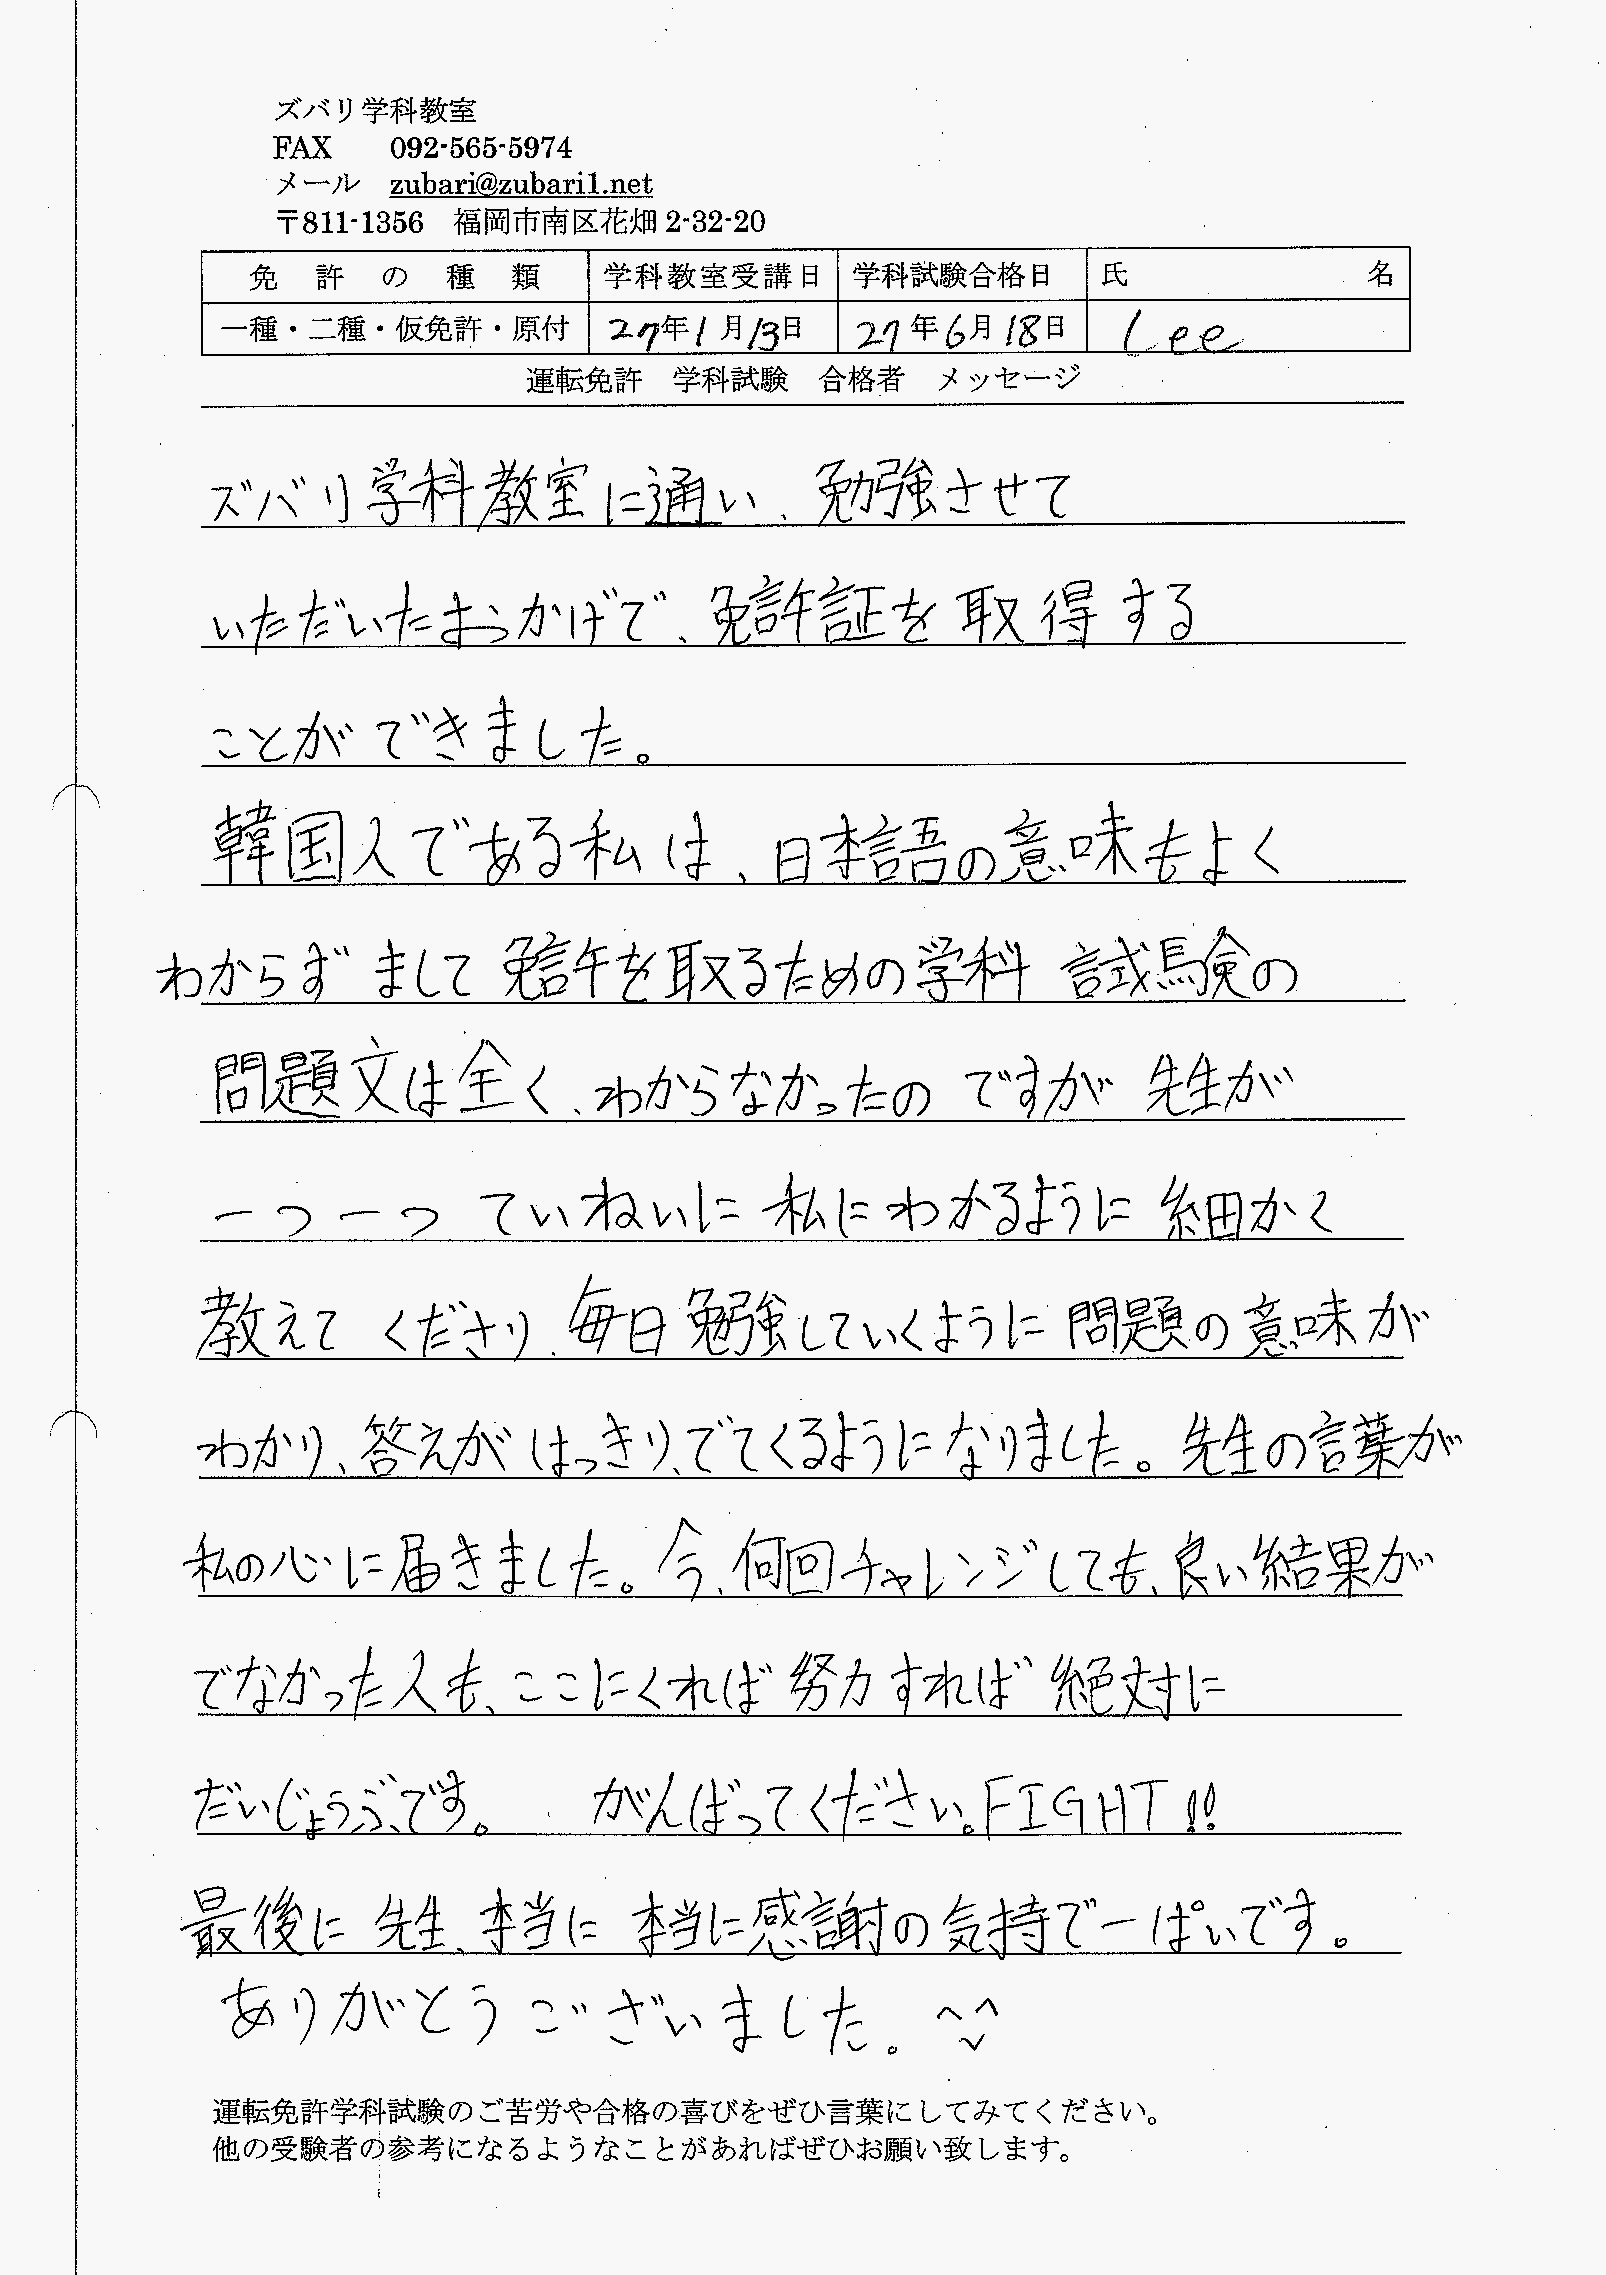 ズバリ学科教室
FAX 092-565-5974
メール zubari@zubari1.net
〒811-1356 福岡市南区花畑 2-32-20
免許の種類 学科教室受講日 学科試験合格日 氏名
一種・二種・仮免許・原付 27年1月13日 27年6月18日 Lee
運転免許 学科試験 合格者 メッセージ
ズバリ学科教室に通い、勉強させて
いただいたおかげで、免許証を取得する
ことができました。
韓国人である私は、日本語の意味もよく
わからずまして免許を取るための学科試験の
問題文は全く、わからなかったのですが先生が
一つ一つていねいに私にわかるように細かく
教えてくださり、毎日勉強していくように問題の意味が
わかり、答えがはっきり、でてくるようになりました。先生の言葉が
私の心に届きました。今、何回チャレンジしても、良い結果が
でなかった人も、ここにくれば努力すれば絶対に
だいじょうぶです。 がんばってください。FIGHT!!
最後に先生、本当に本当に感謝の気持で一ぱいです。
ありがとうございました。^_^
運転免許学科試験のご苦労や合格の喜びをぜひ言葉にしてみてください。
他の受験者の参考になるようなことがあればぜひお願い致します。